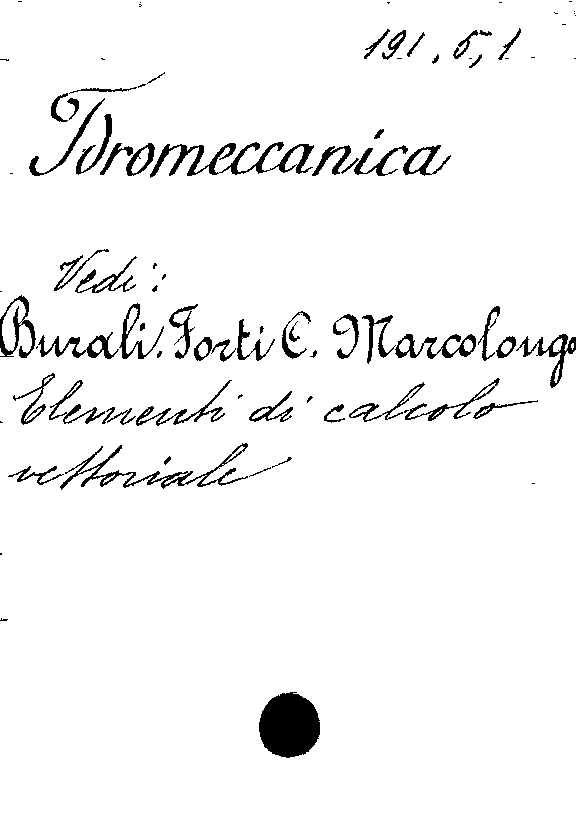 191, 5, 1
Idromeccanica
Vedi:
Burali. Forti C. Marcolongo
Elementi di calcolo
vettoriale